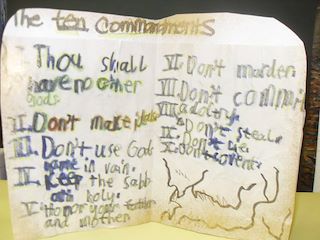 The ten Commanments
I. Thou shall
have no other
gods
II. Don't make idols
III. Don't use Gods
name in vain.
III. Keep the sabb
ath holy.
V. Honor your father
and mother
VI. Don't murder
VII. Don't commit
VIII. adultry.
Don't steal.
IX. Don't lie.
X. Don't covent.